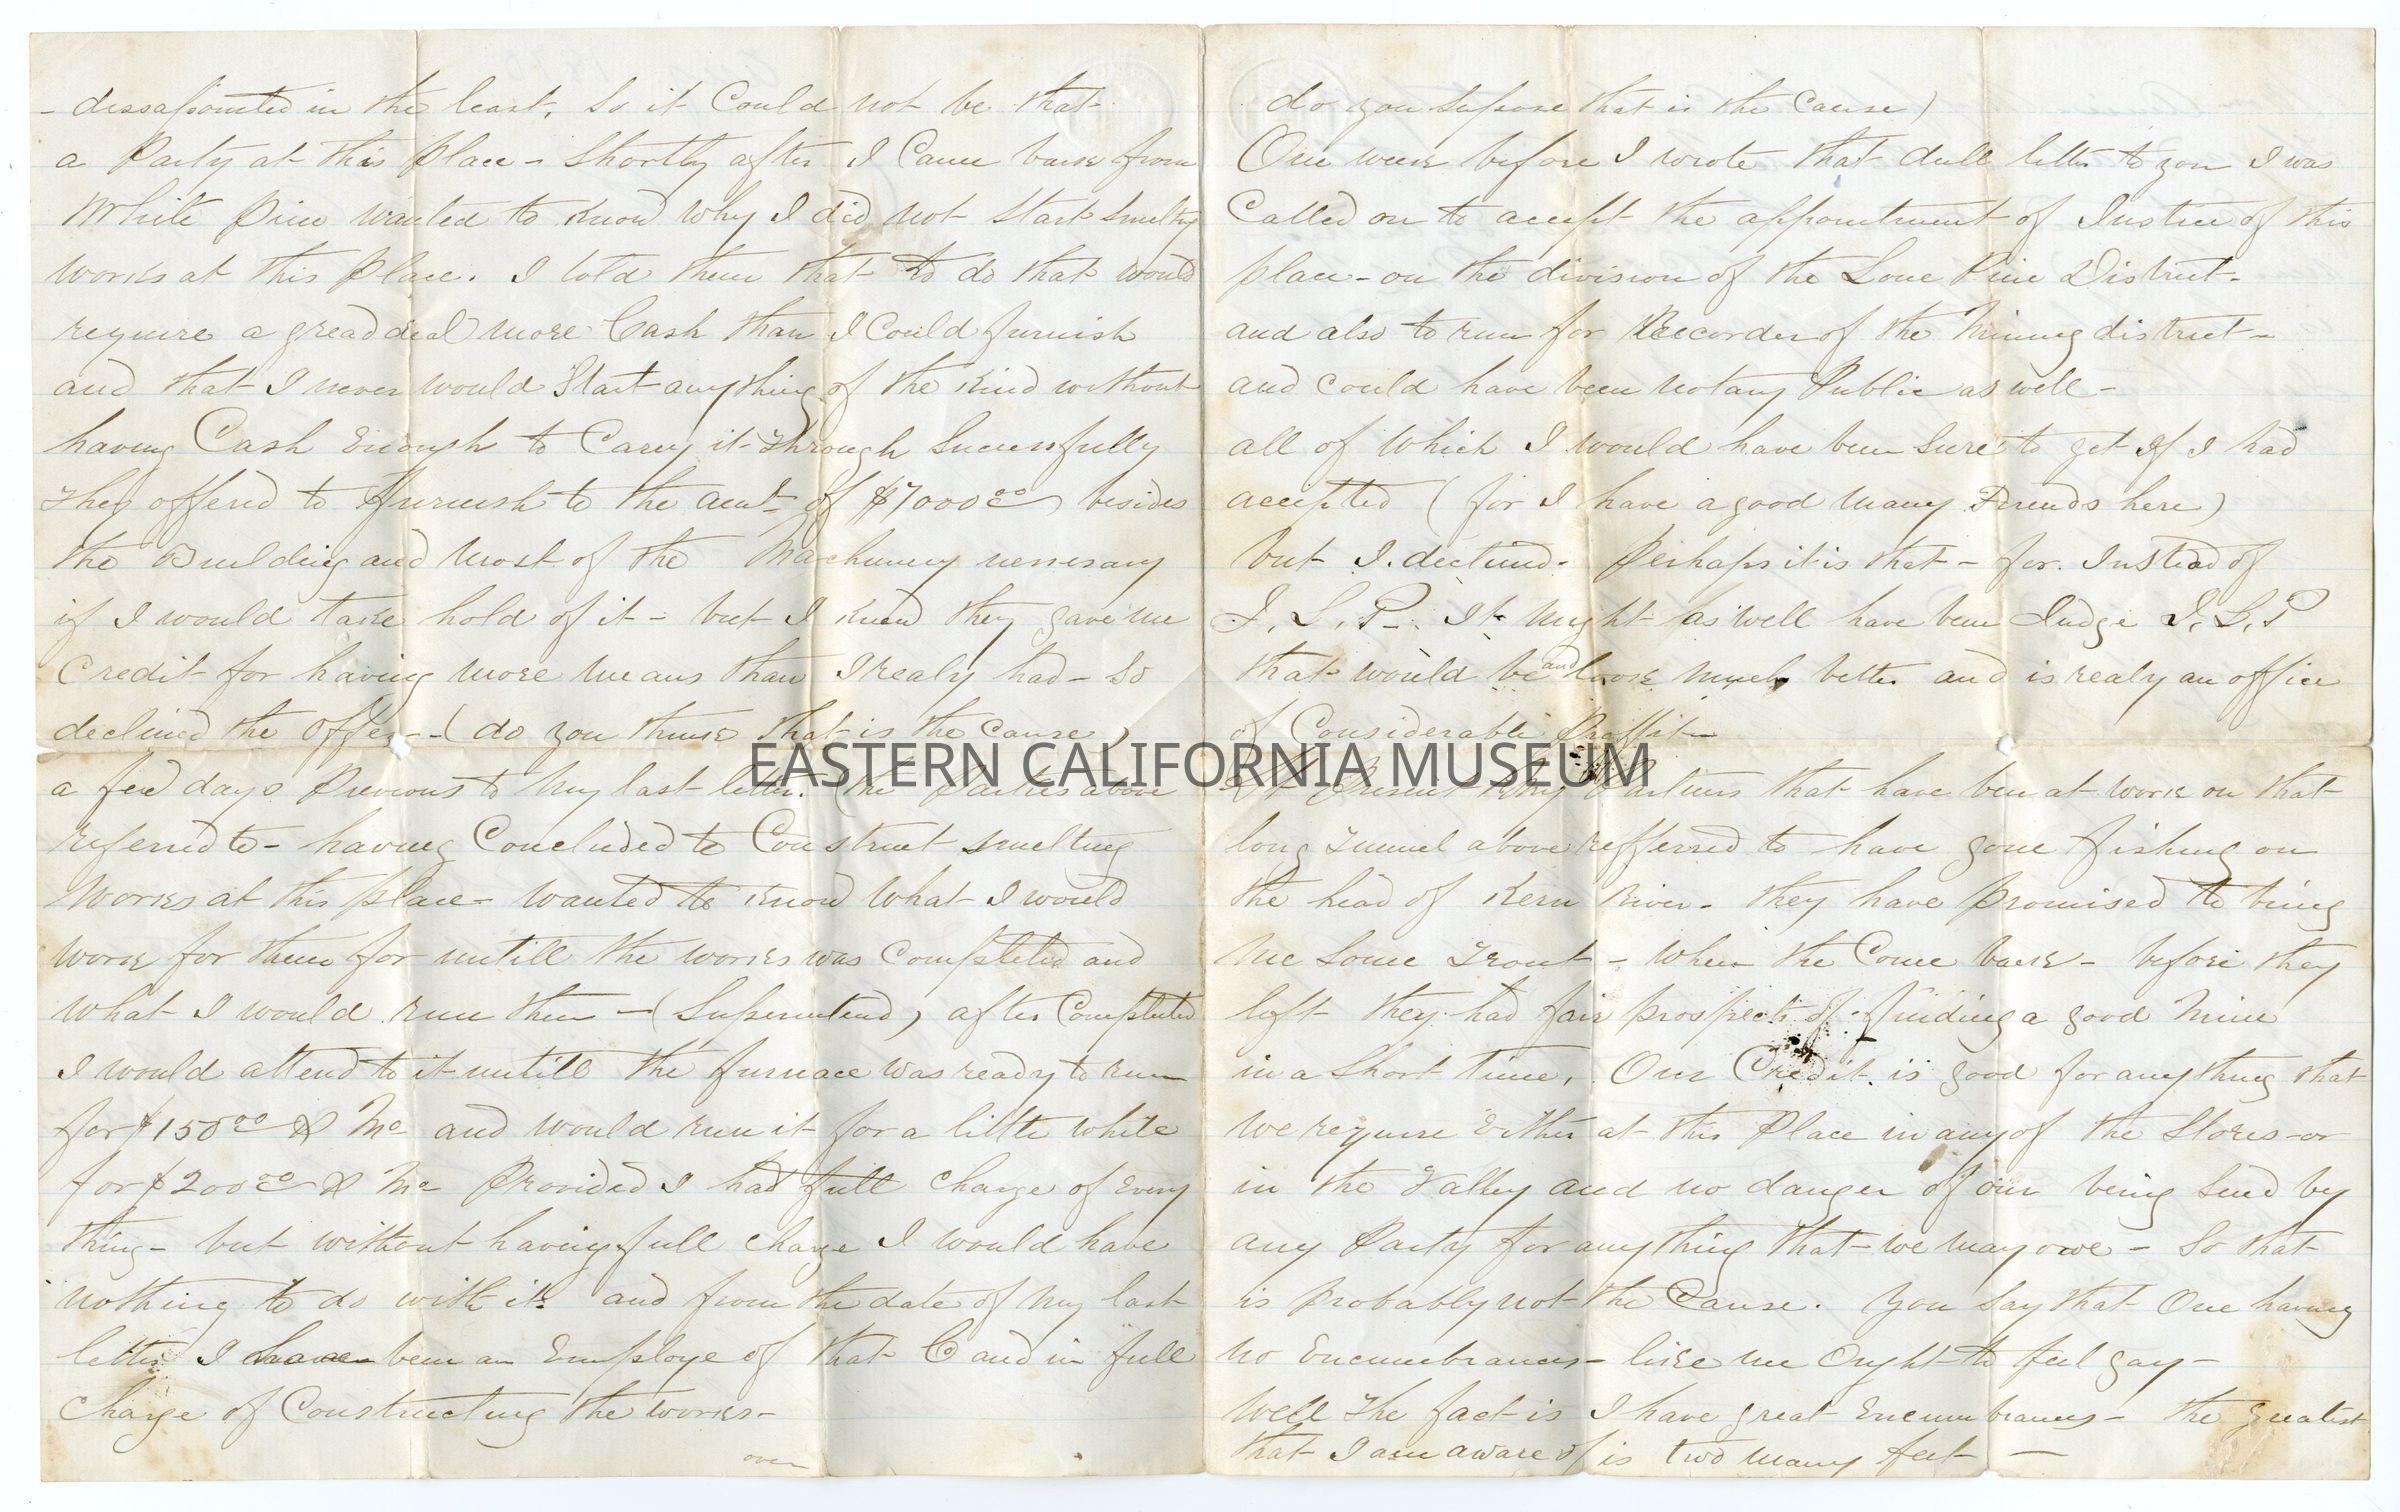 - dissapointed in the least, So it Could not be that
a Party at this Place - Shortly after I Came back from
White Pine wanted to know why I did not Start Smelting
works at this Place. I told them that to do that would
require a gread deal more Cash than I Could furnish
and that I never would Start anything of the kind without
having Cash Enough to Carry it through Sucessfully
They offered to furnish to the amt of $7000.00 besides
the Building and Most of the Machinery nessesary
if I would take hold of it - but I knew they gave me
Credit for having more means than I realy had - So
declined the offer - (do you think that is the cause)
a few days Previous to My last letter. The Parties above
referred to - having Concluded to Construct smelting
Works at this place - wanted to know What I would
work for them for untill the works was Completed and
what I would run them - (Superintend) after Completed
I would attend to it untill the furnace was ready to run
for $150.00 ℔ Mo and would run it for a little while
for $200.00 ℔ Mo Provided I had full Charge of Every
thing - but without having full Charge I would have
nothing to do with it. and from the date of My last
letter I have been an Employe of that Co and in full
Charge of Constructing the works -
over
do you supose that is the Cause)
One week before I wrote that dull letter to you I was
Called on to accept the appointment of Justice of this
place - on the division of the Lone Pine District -
and also to run for Reccorder of the Mining district -
and could have been Notary Public as well -
all of Which I would have been Sure to get If I had
accepted (for I have a good Many Friends here)
but I declind - Perhaps it is that - for Instead of
J. L. P. It Might as well have been Judge J. L. P
that would be and look Much better and is realy an office
of Considerable Proffit -
At Present My Partners that have ben at work on that
long Tunnel above refferred to have gone fishing on
the head of Kern River - they have Promised to bring
Me Some Trout - When the Come back - before they
left they had fair prospects of finding a good Mine
in a Short time. Our Credit is good for anything that
We require Either at this Place in any of the Stores - or
in the Valley and no danger of our being Sued by
any Party for anything that we may owe - So that
is Probably not the Cause. You Say that One having
no Encumbrances - like me Ought to feel gay -
Well the fact is I have great Encumbrances - the greatest
that I am aware of is two many feet -
EASTERN CALIFORNIA MUSEUM